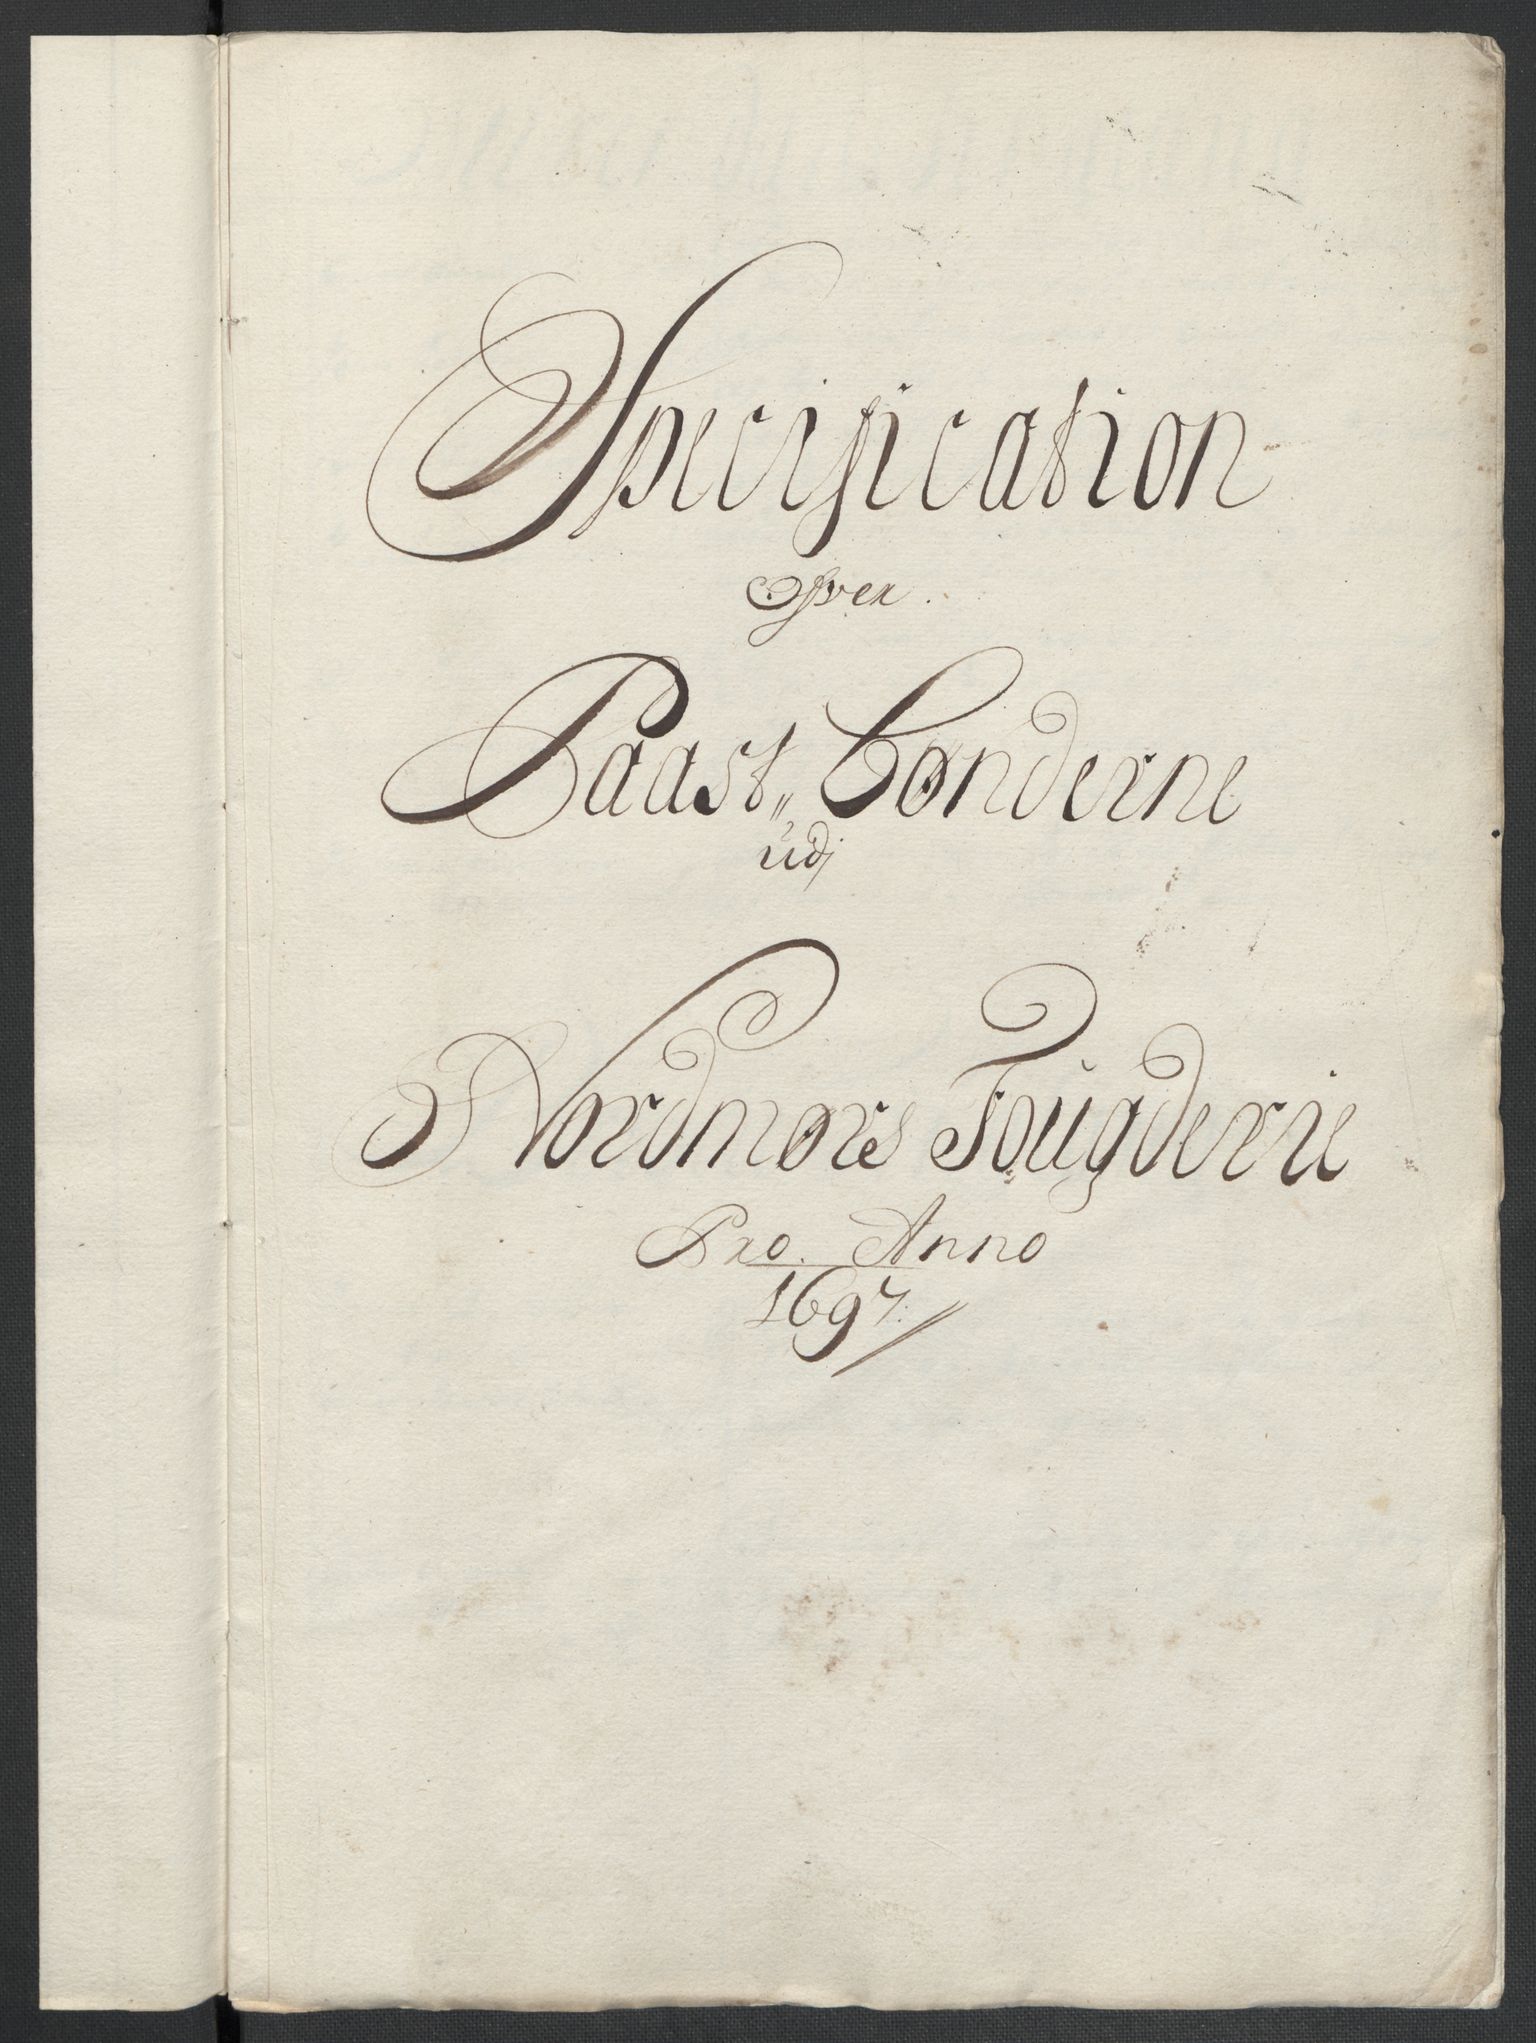 Specification
Ofver.
Paast,, Bønderne
udj
Nordmørs Fougderie
Pro. Anno
1697: